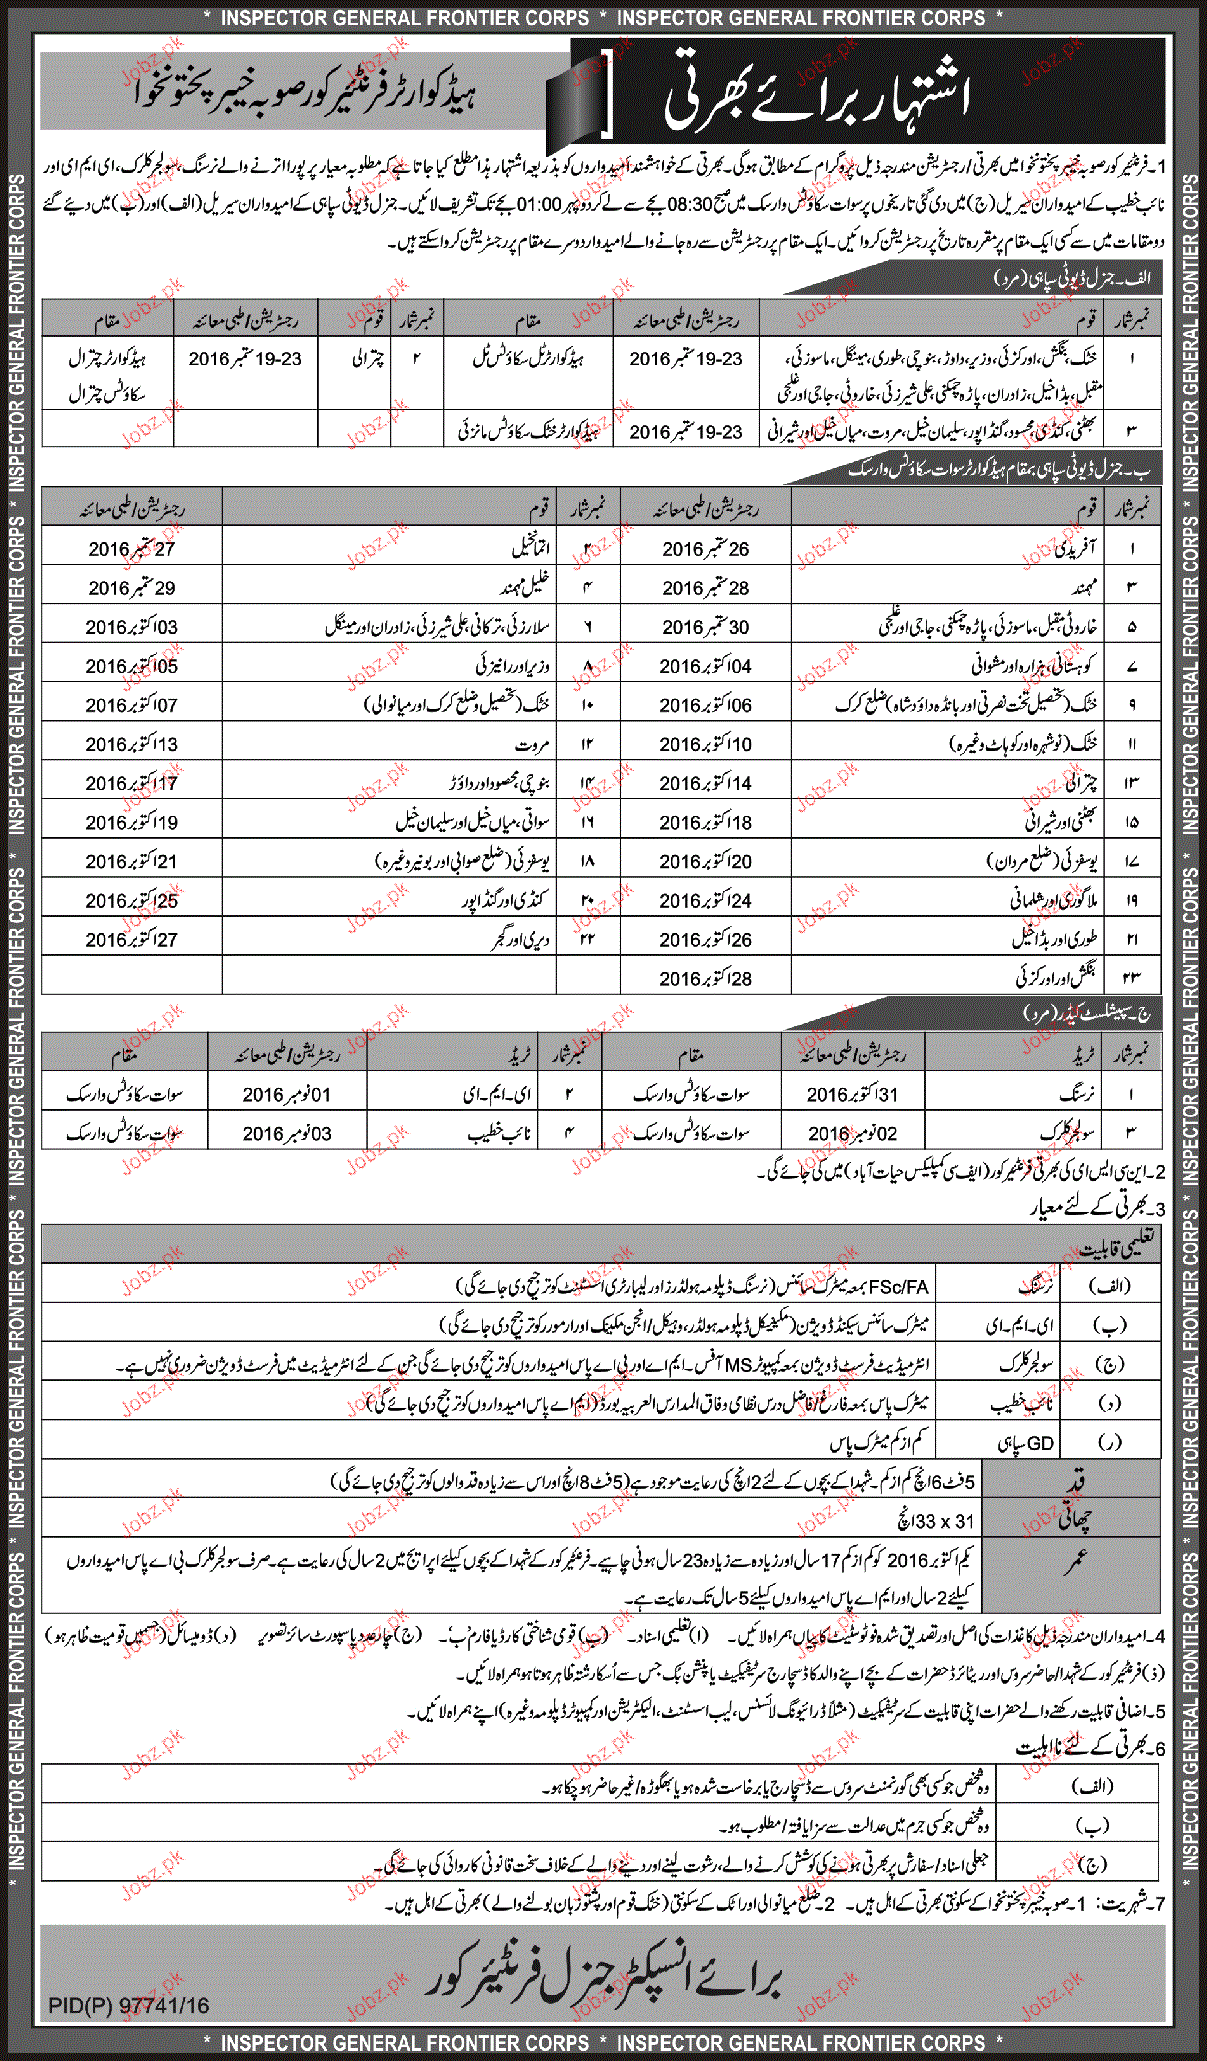 * INSPECTOR GENERAL FRONTIER CORPS * INSPECTOR GENERAL FRONTIER CORPS *
اشتہار برائے بھرتی
ہیڈکوارٹر فرنٹیئر کور صوبہ خیبر پختونخوا
1۔ فرنٹیئر کور صوبہ خیبر پختونخوا میں بھرتی/رجسٹریشن مندرجہ ذیل پروگرام کے مطابق ہوگی۔ بھرتی کے خواہشمند امیدواروں کو بذریعہ اشتہار ہذا مطلع کیا جاتا ہے کہ مطلوبہ معیار پر پورا اترنے والے نرسنگ، سولجر کلرک، ای ایم ای اور
نائب خطیب کے امیدواران سیریل (ج) میں دی گئی تاریخوں پر سوات سکاؤٹس وارسک میں صبح 08:30 بجے سے لے کر دوپہر 01:00 بجے تک تشریف لائیں۔ جنرل ڈیوٹی سپاہی کے امیدواران سیریل (الف) اور (ب) میں دیئے گئے
دو مقامات میں سے کسی ایک مقام پر مقررہ تاریخ پر رجسٹریشن کروائیں۔ ایک مقام پر رجسٹریشن سے رہ جانے والے امیدوار دوسرے مقام پر رجسٹریشن کروا سکتے ہیں۔
الف۔ جنرل ڈیوٹی سپاہی (مرد)
نمبر شمار قوم رجسٹریشن/طبی معائنہ مقام نمبر شمار قوم رجسٹریشن/طبی معائنہ مقام
۱ خٹک، بنگش، اورکزئی، وزیر، داوڑ، بنوچی، طوری، مینگل، ماسوزئی، 19-23 ستمبر 2016 ہیڈکوارٹر ٹل سکاؤٹس ٹل ۲ چترالی 19-23 ستمبر 2016 ہیڈکوارٹر چترال
مقبل، بڈاخیل، زادران، پاڑہ چمکنی، علی شیرزئی، خاروٹی، جاجی اور غلجی سکاؤٹس چترال
۳ بھٹنی، کنڈی، محسود، گنڈاپور، سلیمان خیل، مروت، میاں خیل اور شیرانی 19-23 ستمبر 2016 ہیڈکوارٹر خٹک سکاؤٹس مانزئی
ب۔ جنرل ڈیوٹی سپاہی بمقام ہیڈکوارٹر سوات سکاؤٹس وارسک
نمبر شمار قوم رجسٹریشن/طبی معائنہ نمبر شمار قوم رجسٹریشن/طبی معائنہ
۱ آفریدی 26 ستمبر 2016 ۲ اتمانخیل 27 ستمبر 2016
۳ مہمند 28 ستمبر 2016 ۴ خلیل مہمند 29 ستمبر 2016
۵ خاروٹی، مقبل، ماسوزئی، پاڑہ چمکنی، جاجی اور غلجی 30 ستمبر 2016 ۶ سلارزئی، ترکانی، علی شیرزئی، زادران اور مینگل 03 اکتوبر 2016
۷ کوہستانی، ہزارہ اور مشوانی 04 اکتوبر 2016 ۸ وزیر اور رانیزئی 05 اکتوبر 2016
۹ خٹک (تحصیل تخت نصرتی اور بانڈہ داؤد شاہ) ضلع کرک 06 اکتوبر 2016 ۱۰ خٹک (تحصیل و ضلع کرک اور میانوالی) 07 اکتوبر 2016
۱۱ خٹک (نوشہرہ اور کوہاٹ وغیرہ) 10 اکتوبر 2016 ۱۲ مروت 13 اکتوبر 2016
۱۳ چترالی 14 اکتوبر 2016 ۱۴ بنوچی، محسود اور داؤڑ 17 اکتوبر 2016
۱۵ بھٹنی اور شیرانی 18 اکتوبر 2016 ۱۶ سواتی، میاں خیل اور سلیمان خیل 19 اکتوبر 2016
۱۷ یوسفزئی (ضلع مردان) 20 اکتوبر 2016 ۱۸ یوسفزئی (ضلع صوابی اور بونیر وغیرہ) 21 اکتوبر 2016
۱۹ ملاگوری اور شلمانی 24 اکتوبر 2016 ۲۰ کنڈی اور گنڈاپور 25 اکتوبر 2016
۲۱ طوری اور بڈاخیل 26 اکتوبر 2016 ۲۲ دیری اور گجر 27 اکتوبر 2016
۲۳ بنگش اور اورکزئی 28 اکتوبر 2016
ج۔ سپیشلسٹ کیڈر (مرد)
نمبر شمار ٹریڈ رجسٹریشن/طبی معائنہ مقام نمبر شمار ٹریڈ رجسٹریشن/طبی معائنہ مقام
۱ نرسنگ 31 اکتوبر 2016 سوات سکاؤٹس وارسک ۲ ای۔ایم۔ای 01 نومبر 2016 سوات سکاؤٹس وارسک
۳ سولجر کلرک 02 نومبر 2016 سوات سکاؤٹس وارسک ۴ نائب خطیب 03 نومبر 2016 سوات سکاؤٹس وارسک
2۔ این سی ایس ای کی بھرتی فرنٹیئر کور (ایف سی کمپلیکس حیات آباد) میں کی جائے گی۔
3۔ بھرتی کے لئے معیار
تعلیمی قابلیت
(الف) نرسنگ FSc/FA بمعہ میٹرک سائنس (نرسنگ ڈپلومہ ہولڈرز اور لیبارٹری اسسٹنٹ کو ترجیح دی جائے گی)
(ب) ای۔ایم۔ای میٹرک سائنس سیکنڈ ڈویژن (مکینیکل ڈپلومہ ہولڈر، وہیکل/انجن مکینک اور ارمورر کو ترجیح دی جائے گی)
(ج) سولجر کلرک انٹرمیڈیٹ فرسٹ ڈویژن بمعہ کمپیوٹر MS آفس۔ ایم اے اور بی اے پاس امیدواروں کو ترجیح دی جائے گی جن کے لئے انٹرمیڈیٹ میں فرسٹ ڈویژن ضروری نہیں ہے۔
(د) نائب خطیب میٹرک پاس بمعہ فارغ/فاضل درس نظامی وفاق المدارس العربیہ بورڈ (ایم اے پاس امیدواروں کو ترجیح دی جائے گی)
(ر) GD سپاہی کم از کم میٹرک پاس
قد 5 فٹ 6 انچ کم از کم۔ شہدا کے بچوں کے لئے 2 انچ کی رعایت موجود ہے (5 فٹ 8 انچ اور اس سے زیادہ قد والوں کو ترجیح دی جائے گی)
چھاتی 31 x 33 انچ
عمر یکم اکتوبر 2016 کو کم از کم 17 سال اور زیادہ سے زیادہ 23 سال ہونی چاہیے۔ فرنٹیئر کور کے شہدا کے بچوں کیلئے اپر ایج میں 2 سال کی رعایت ہے۔ صرف سولجر کلرک بی اے پاس امیدواروں
کیلئے 2 سال اور ایم اے پاس امیدواروں کیلئے 5 سال تک رعایت ہے۔
4۔ امیدواران مندرجہ ذیل کاغذات کی اصل اور تصدیق شدہ فوٹوسٹیٹ کاپیاں ہمراہ لائیں۔ (ا) تعلیمی اسناد۔ (ب) قومی شناختی کارڈ یا فارم 'ب'۔ (ج) چار عدد پاسپورٹ سائز تصویر (د) ڈومیسائل (جسمیں قومیت ظاہر ہو)
(ذ) فرنٹیئر کور کے شہدا/حاضر سروس اور ریٹائرڈ حضرات کے بچے اپنے والد کا ڈسچارج سرٹیفکیٹ یا پنشن بک جس سے اُسکا رشتہ ظاہر ہوتا ہو ہمراہ لائیں۔
5۔ اضافی قابلیت رکھنے والے حضرات اپنی قابلیت کے سرٹیفکیٹ (مثلاً ڈرائیونگ لائسنس، لیب اسسٹنٹ، الیکٹریشن اور کمپیوٹر ڈپلومہ وغیرہ) اپنے ہمراہ لائیں۔
6۔ بھرتی کے لئے نااہلیت
(الف) وہ شخص جو کسی بھی گورنمنٹ سروس سے ڈسچارج یا برخاست شدہ ہو یا بھگوڑہ/غیر حاضر ہو چکا ہو۔
(ب) وہ شخص جو کسی جرم میں عدالت سے سزا یافتہ/مطلوب ہو۔
(ج) جعلی اسناد/سفارش پر بھرتی ہونے کی کوشش کرنے والے، رشوت لینے اور دینے والے کے خلاف سخت قانونی کاروائی کی جائے گی۔
7۔ شہریت: 1۔ صوبہ خیبر پختونخوا کے سکونتی بھرتی کے اہل ہیں۔ 2۔ ضلع میانوالی اور اٹک کے سکونتی (خٹک قوم اور پشتو زبان بولنے والے) بھرتی کے اہل ہیں۔
برائے انسپکٹر جنرل فرنٹیئر کور
PID(P) 97741/16
* INSPECTOR GENERAL FRONTIER CORPS * INSPECTOR GENERAL FRONTIER CORPS *